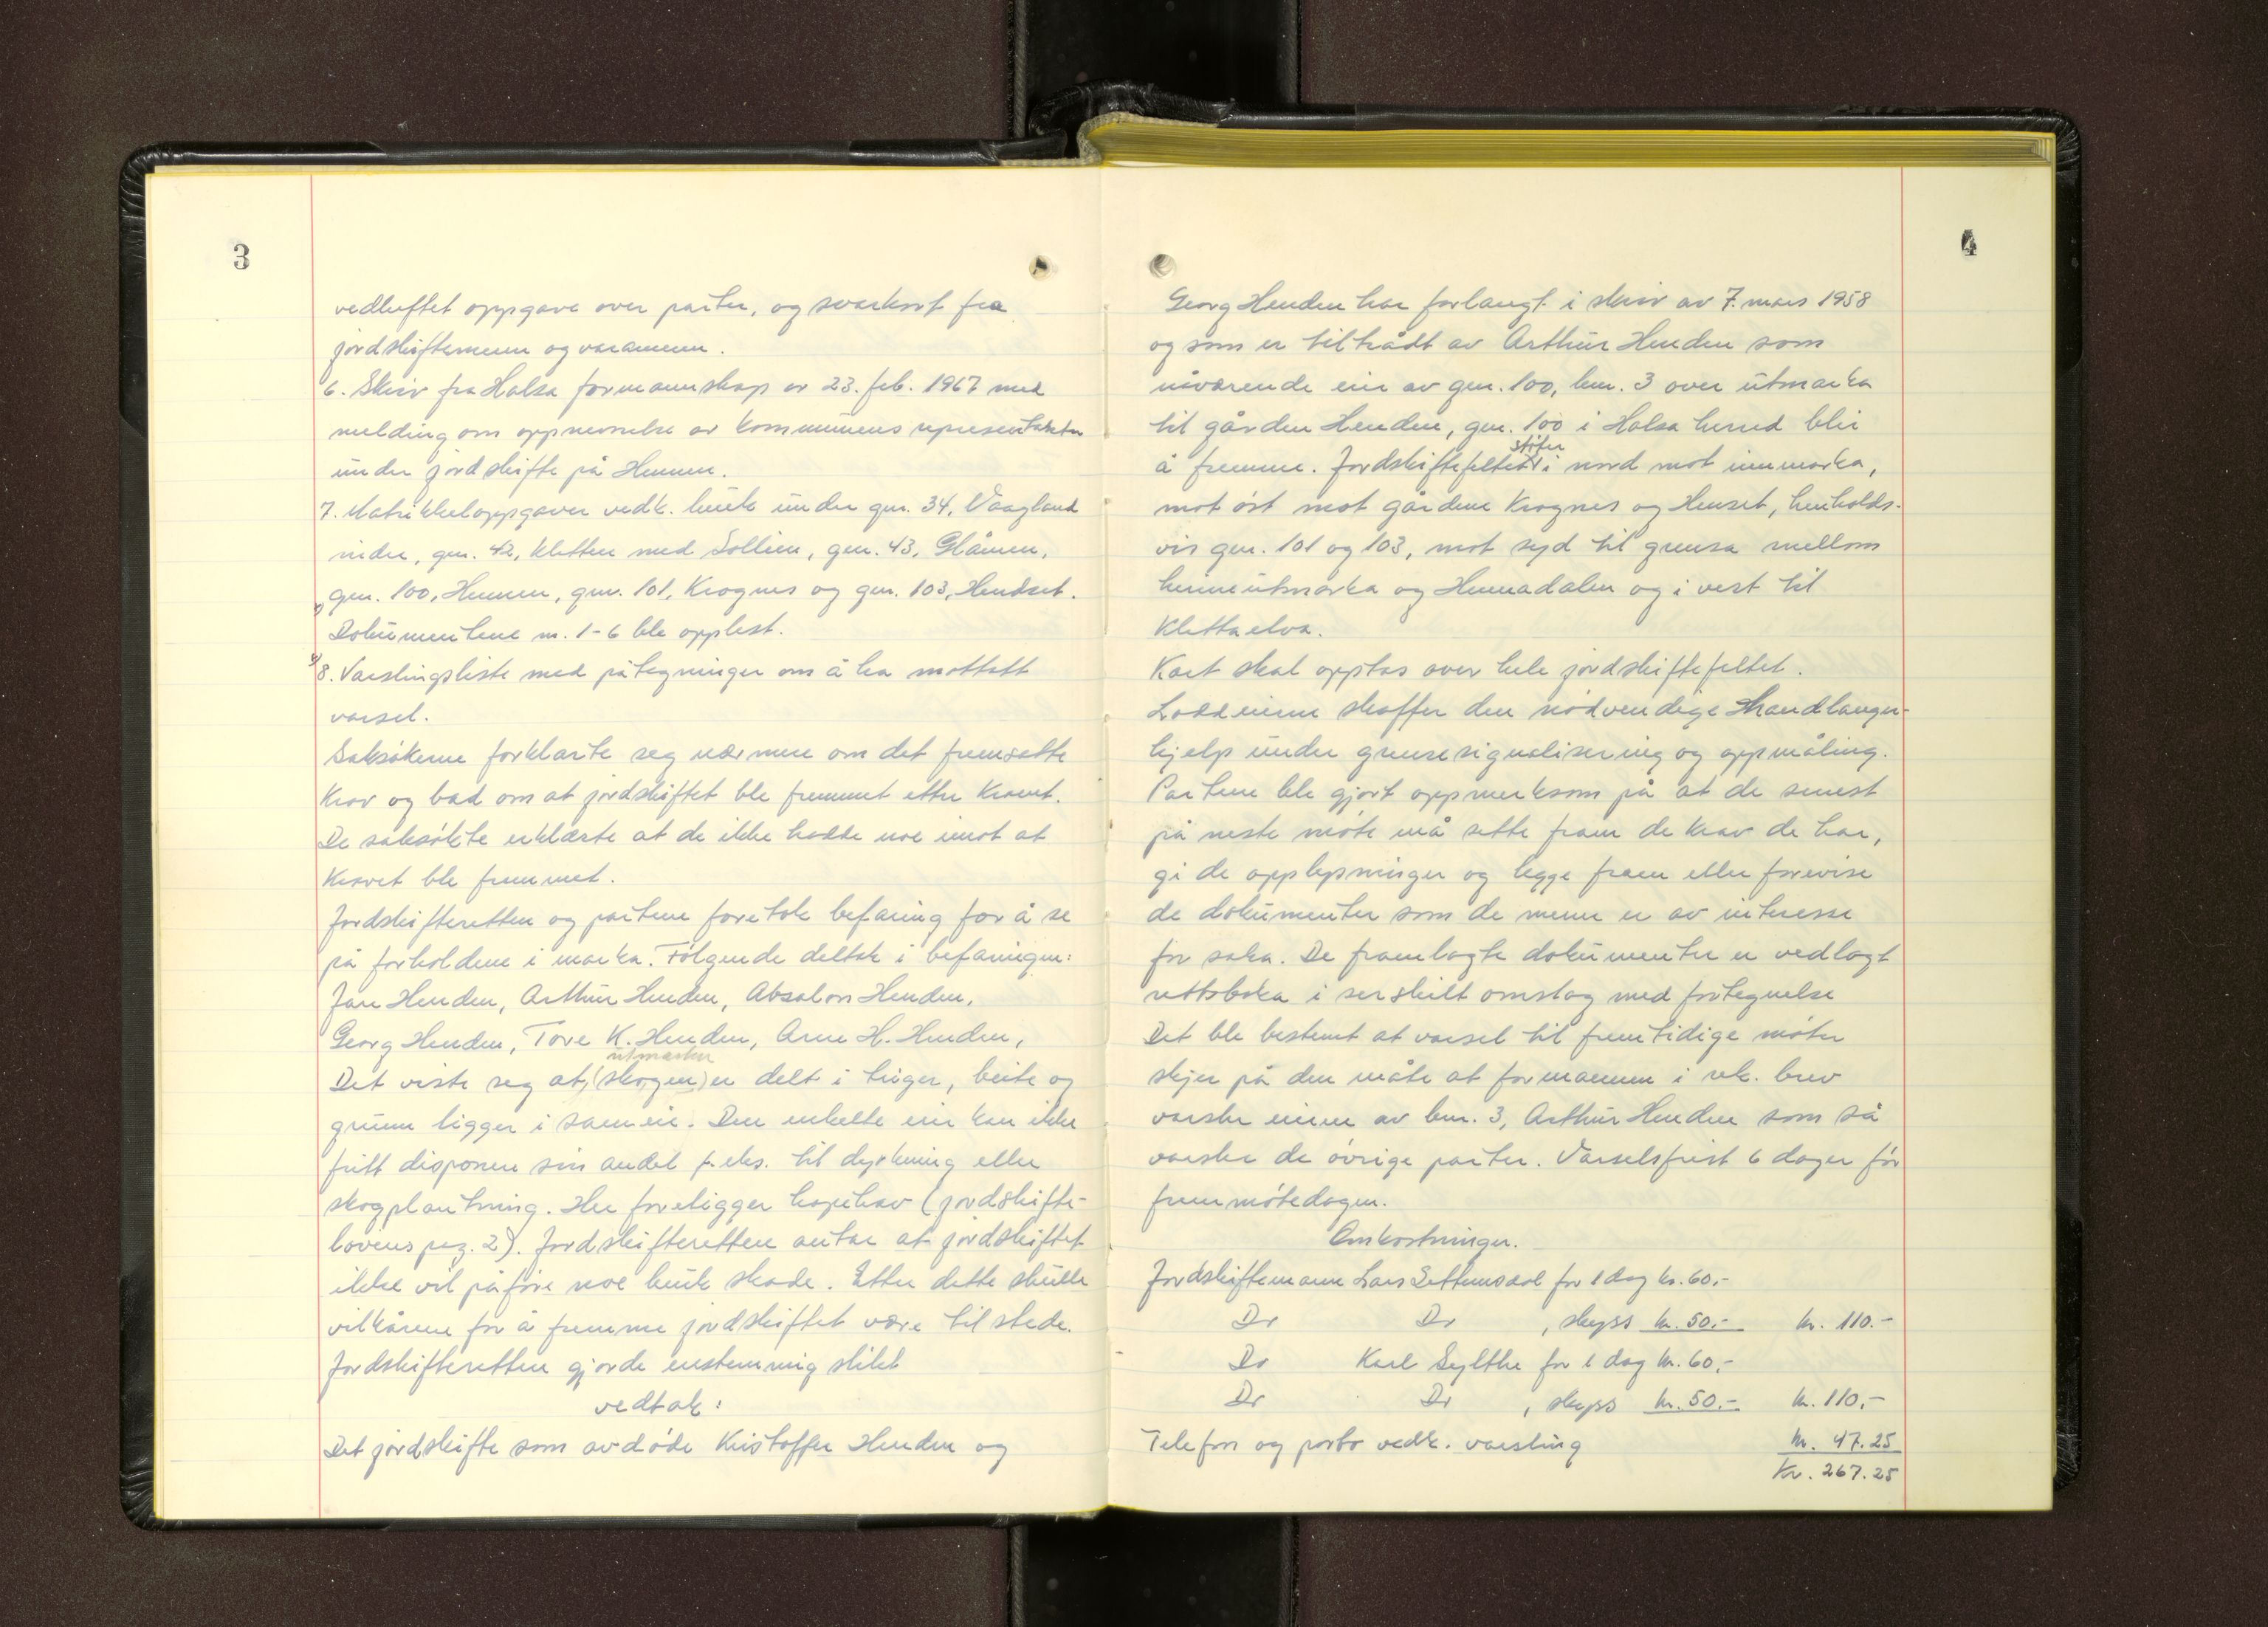 3
vedheftet oppgave over parter, og svarkort fra
jordskiftemenn og varamenn.
6. Skriv fra Halsa formannskap av 23. feb. 1967 med
melding om oppnevnelse av kommunens representanter
under jordskifte på Hennen.
7. Matrikkeloppgaver vedk. bruk under gnr. 34, Vaagland
indre, gnr. 42, Kletten med Sollien, gnr. 43, Glåmen,
gnr. 100, Hennen, gnr. 101, Krognes og gnr. 103, Hendset.
Dokumentene nr. 1-6 ble opplest.
8. Varslingsliste med påtegninger om å ha mottatt
varsel.
Saksøkerne forklarte seg nærmere om det fremsatte
krav og bad om at jordskiftet ble fremmet etter kravet.
De saksøkte erklærte at de ikke hadde noe imot at
kravet ble fremmet.
Jordskifteretten og partene foretok befaring for å se
på forholdene i marka. Følgende deltok i befaringen:
Jon Henden, Arthur Henden, Absalon Henden,
Georg Henden, Tore K. Henden, Arne H. Henden,
utmarka
Det viste seg at (skogen) er delt i teiger, beite og
grunn ligger i sameie. Den enkelte eier kan ikke
fritt disponere sin andel f. eks. til dyrkning eller
skogplantning. Her foreligger høpehav (jordskifte-
lovens prg. 2). Jordskifteretten antar at jordskiftet
ikke vil påføre noe bruk skade. Etter dette skulle
vilkårene for å fremme jordskiftet være til stede.
Jordskifteretten gjorde enstemmig slikt
vedtak:
Det jordskifte som avdøde Kristoffer Henden og
4
Georg Henden har forlangt i skriv av 7. mars 1958
og som er tiltrådt av Arthur Henden som
nåværende eier av gnr. 100, bnr. 3 over utmarka
til gården Henden, gnr. 100 i Halsa herred blir
å fremme. Jordskiftefeltet støter i nord mot innmarka,
mot øst mot gårdene Krognes og Henset, henholds-
vis gnr. 101 og 103, mot syd til grensa mellom
heimeutmarka og Hennadalen og i vest til
Klettaelva.
Kart skal opptas over hele jordskiftefeltet.
Loddeierne skaffer den nødvendige handlanger-
hjelp under grensesignalisering og oppmåling.
Partene ble gjort oppmerksom på at de senest
på neste møte må sette fram de krav de har,
gi de opplysninger og legge fram eller forevise
de dokumenter som de mener er av interesse
for saka. De framlagte dokumenter er vedlagt
rettsboka i serskilt omslag med fortegnelse
Det ble bestemt at varsel til fremtidige møter
skjer på den måte at formannen i rek. brev
varsler eieren av bnr. 3, Arthur Henden som så
varsler de øvrige parter. Varselsfrist 6 dager før
fremmøtedagen.
Omkostninger.
Jordskiftemann Lars Settemsdal for 1 dag kr. 60,-
Do Do , skyss kr. 50.- kr. 110.-
Do Karl Sylthe for 1 dag kr. 60,-
Do Do , skyss kr. 50.- kr. 110,-
Telefon og porto vedk. varsling kr. 47.25
Kr. 267.25